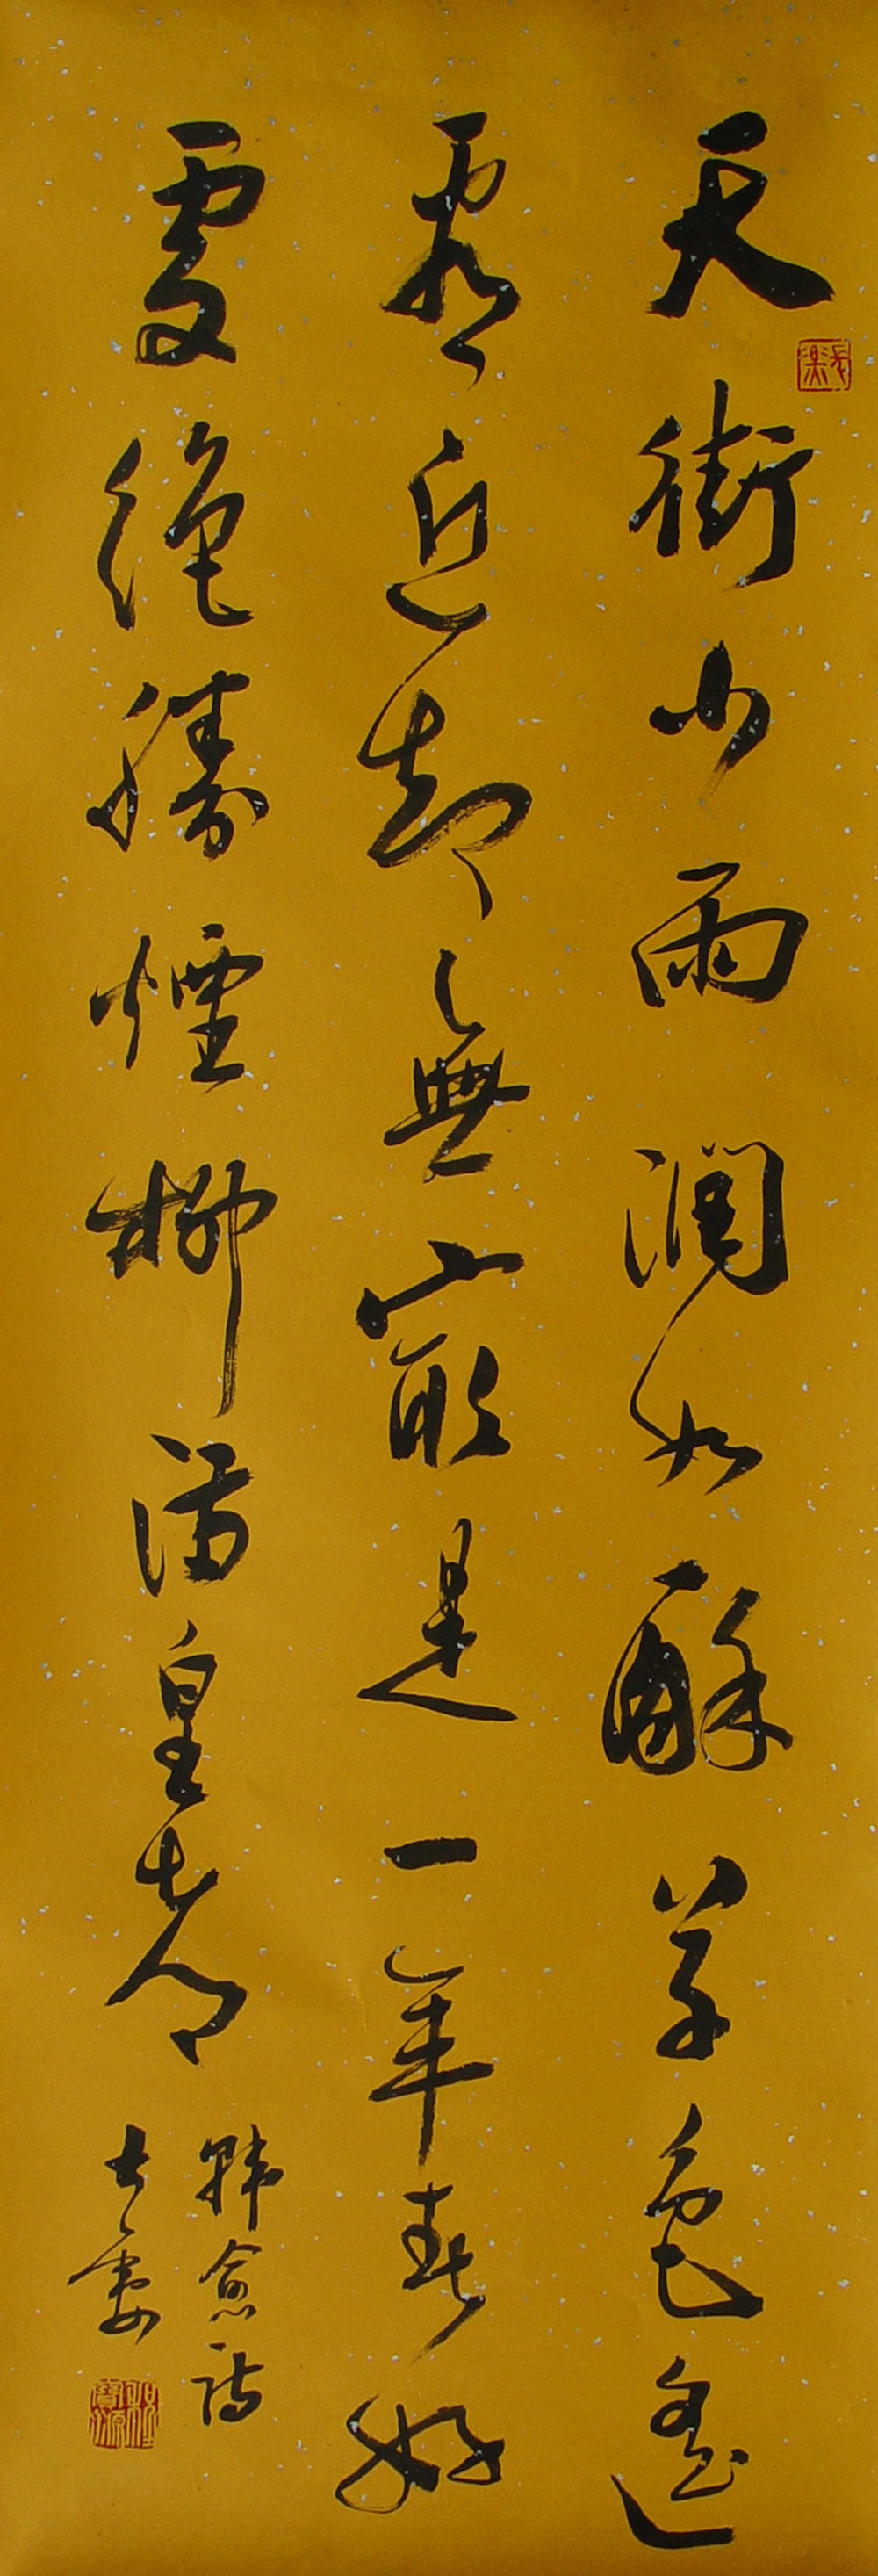 天街小雨潤如酥草色遙
看近却無最是一年春好
處絕勝煙柳滿皇都
韓愈詩